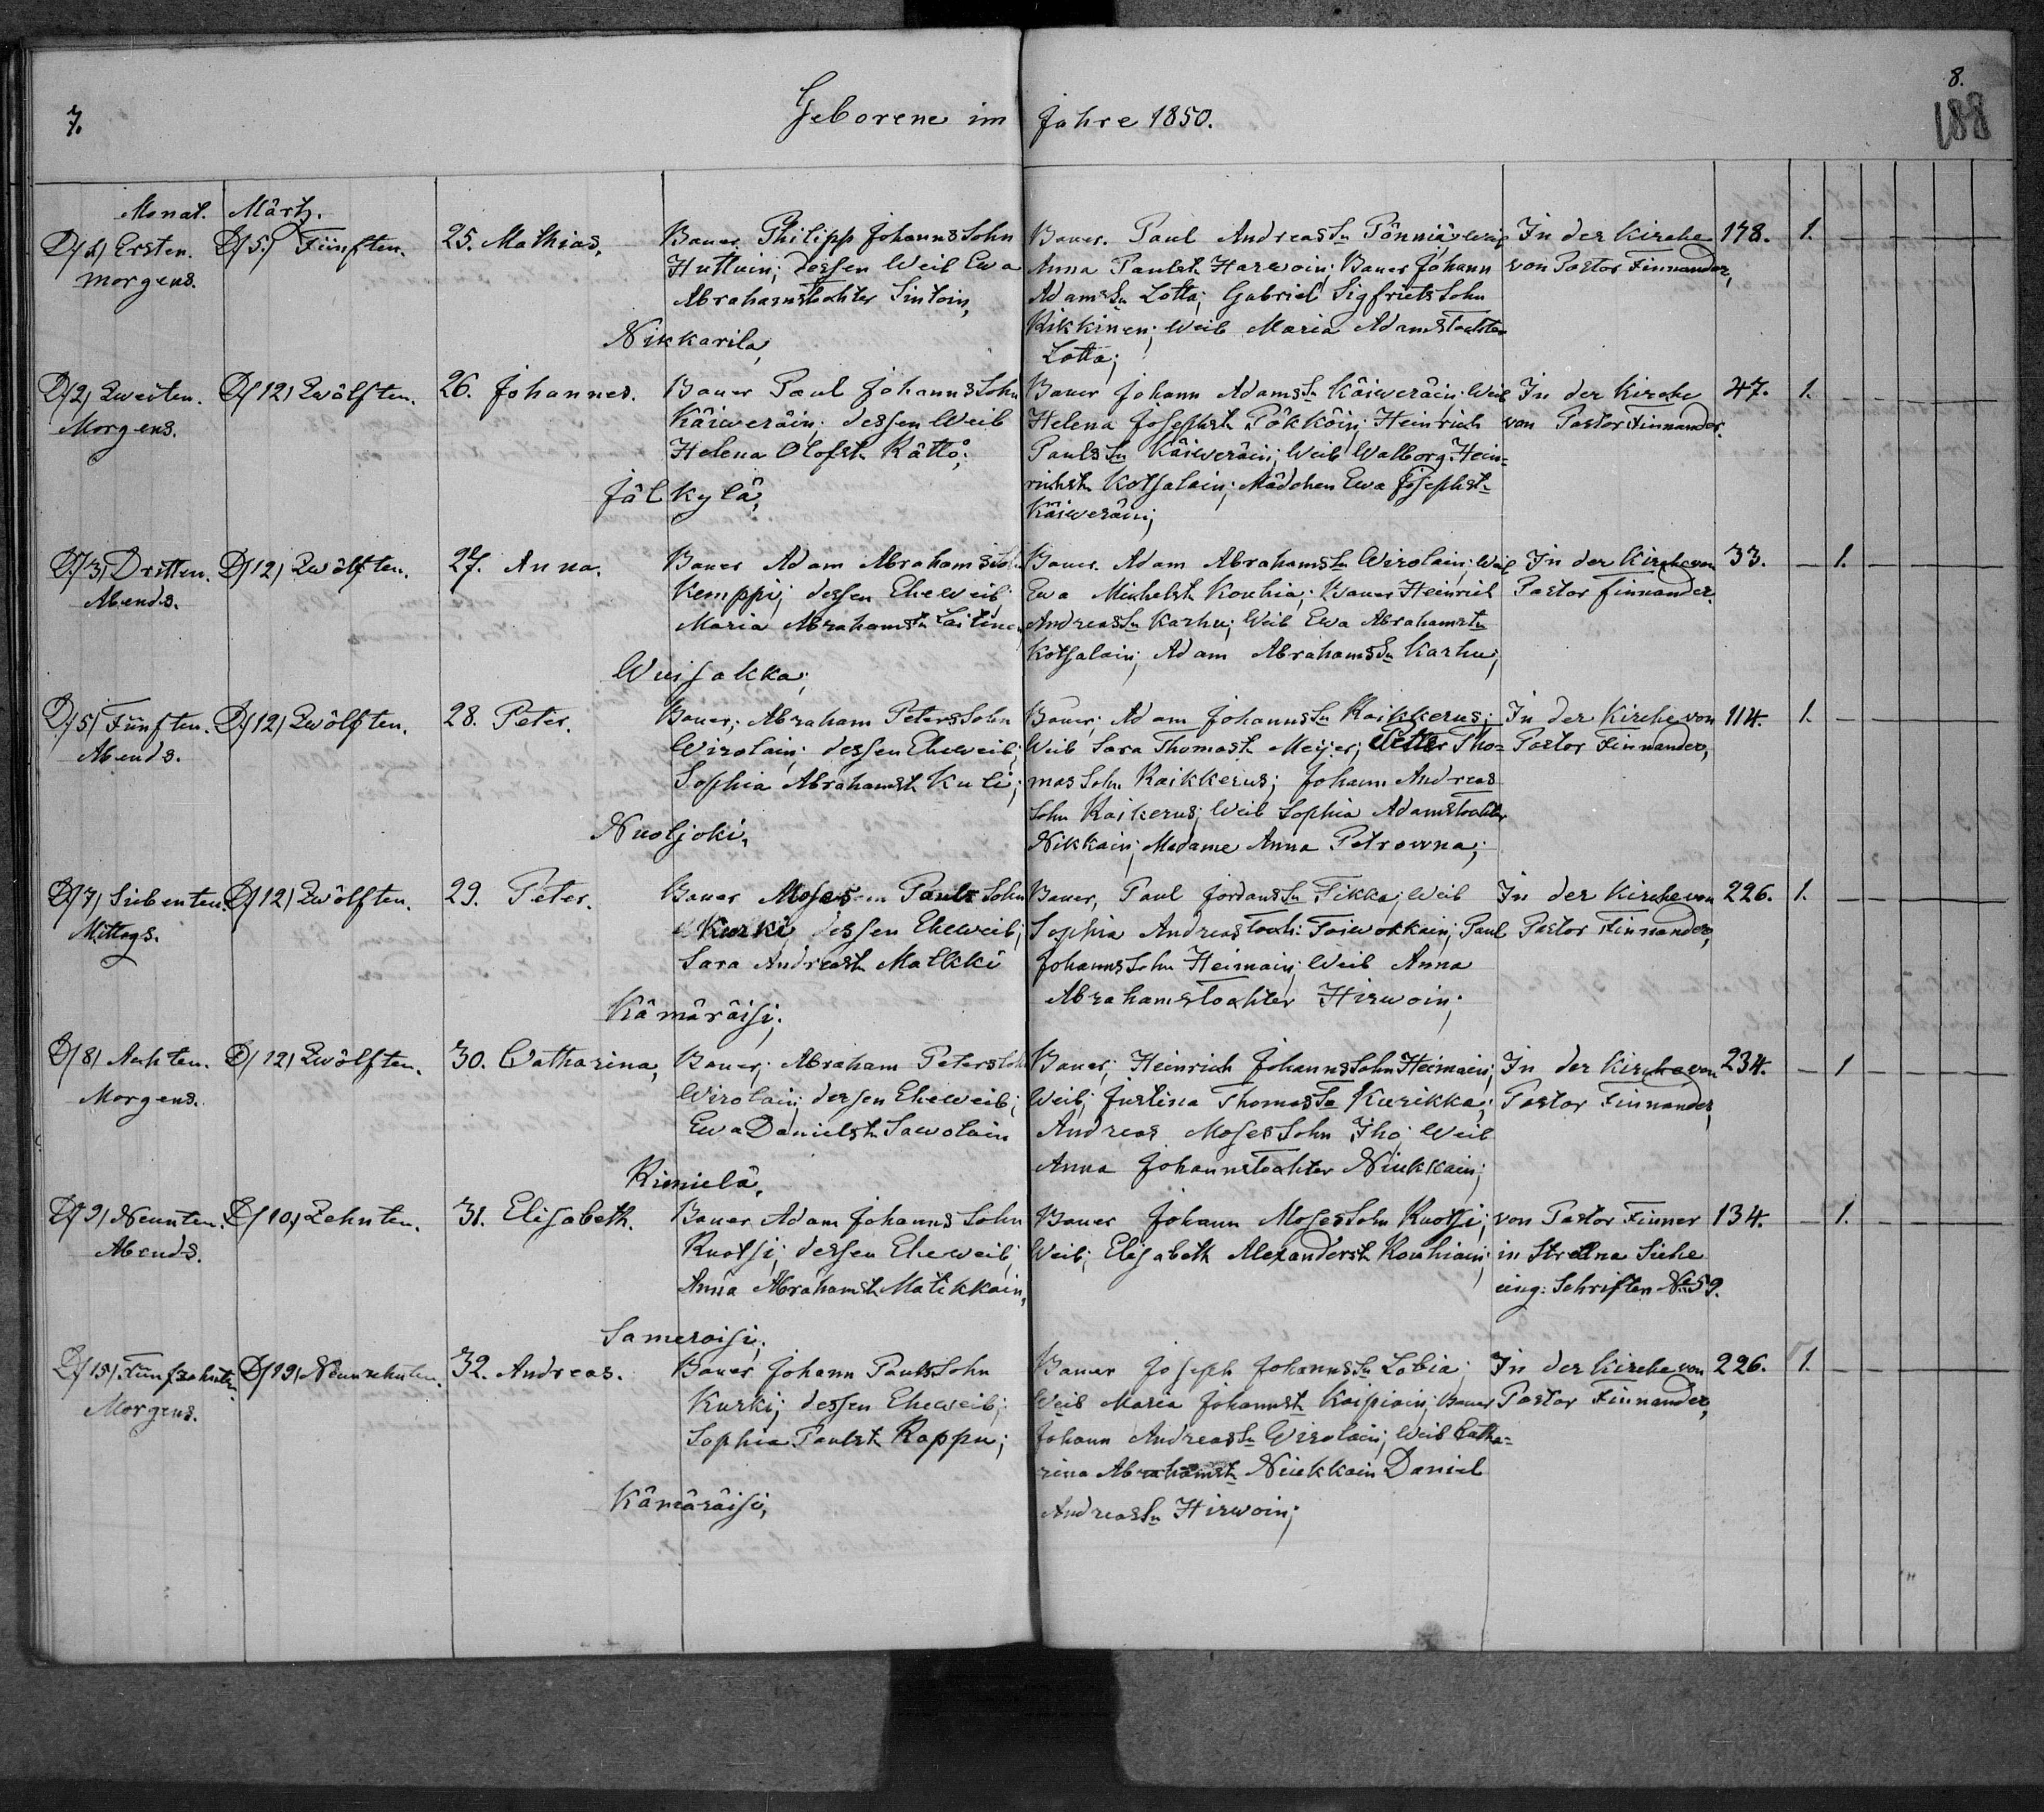 7.
Geborene im Jahre 1850.
8.
188
Monat. Märtz.
D/1) Ersten. D/5.) Fünften. 25. Mathias. Bauer Philipp Johanns Sohn Bauer. Paul Andreas Sn Pönniä; Weib In der Kirche 178. 1.
morgens. Huttuin; dessen Weib Ewa Anna Paulst. Harwoin; Bauer Johann von Pastor Finnander,
Abrahamstochter Sintoin, Adams Sn Zotta; Gabriel Sigfriets Sohn
Kikkinen; Weib Maria Adamstochter
Nikkarila,
Zotta;
D/2) Zweiten. D/12) Zwölften. 26. Johannes. Bauer Paul Johanns Sohn Bauer Johann Adams Sn Käiweräin; Weib In der Kirche 47. 1.
Morgens. Käiweräin; dessen Weib Helena Josephst. Pökköin; Heinrich von Pastor Finnander.
Helena Olofst. Rättö; Pauls Sn Käiweräin; Weib Walborg Hein=
Jälkylä; richst. Kotsalain; Mädchen Ewa Josephst.
Käiweräin;
D/3) Dritten. D/12) Zwölften. 27. Anna. Bauer Adam Abrahams Sohn Bauer. Adam Abrahams Sn Wirolain; Weib In der Kirche von 33. 1.
Abends. Kemppi; dessen Eheweib Ewa Michelst. Kouhia; Bauer Heinrich Pastor Finnander.
Maria Abrahamstn Laitinen, Andreas Sn Karhu; Weib Ewa Abrahamstn
Kotsalain; Adam Abrahams Sn Karhu;
Wuisakka;
D/5) Fünften. D/12) Zwölften. 28. Peter. Bauer; Abraham Peters Sohn Bauer; Adam Johanns Sn Raikkerus; In der Kirche von 114. 1.
Abends. Wirolain; dessen Eheweib; Weib Sara Thomast. Meijer; Peter Tho= Pastor Finnander,
Sophia Abrahamst. Kuli; mas Sohn Raikkerus; Johann Andreas
Sohn Raikerus; Weib Sophia Adamstochter
Nuoljoki,
Nikkain; Madame Anna Petrowna;
D/7) Siebenten. D/12) Zwölften. 29. Peter. Bauer Moses Pauls Sohn Bauer, Paul Jordans Sn Fikka; Weib In der Kirche von 226. 1.
Mittags. Kurki dessen Eheweib; Sophia Andreas Toch: Toiwokkain; Paul Pastor Finnander,
Sara Andreast. Malkki Johanns Sohn Heimain; Weib Anna
Abrahamstochter Hirwoin;
Kämäräisi;
D/8) Achten. D/12) Zwölften. 30. Catharina, Bauer; Abraham Peters Sohn Bauer; Heinrich Johanns Sohn Heimain; In der Kirche von 234. 1
Morgens. Wirolain; dessen Eheweib; Weib; Justina Thomas Tn Kurikka; Pastor Finnander,
Ewa Danielst. Sawolain Andreas Moses Sohn Iho; Weib
Anna Johannstochter Niukkain;
Rimielä,
D/9) Neunten. D/10) Zehnten. 31. Elisabeth. Bauer Adam Johanns Sohn Bauer Johann Moses Sohn Ruotsi; von Pastor Finner 134. 1.
Abends. Ruotsi; dessen Eheweib; Weib; Elisabeth Alexanderst. Kouhiain; in Strelna Siehe
Anna Abrahamst. Matikkain, eing: Schriften No 59.
Sameroisi;
D/15) Fünfzehnten. D/19) Neunzehnten. 32. Andreas. Bauer Johann Pauls Sohn Bauer Joseph Johanns Sn Zobia; In der Kirche von 226. 1.
Morgens. Kurki; dessen Eheweib; Weib Maria Johannst. Kaipiain; Bauer Pastor Finnander,
Sophia Paulst. Rappu; Johann Andreas Sn Wirolain; Weib Catha=
rina Abrahamst. Niukkain Daniel
Kämäräisi, Andreas Sn Hirwoin;